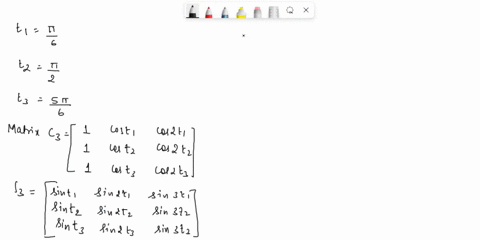 t1 = π/6
t2 = π/2
t3 = 5π/6
Matrix C3 = [ 1 cost1 cos2t1
1 cost2 cos2t2
1 cost3 cos2t3 ]
S3 = [ sint1 sin2t1 sin3t1
sint2 sin2t2 sin3t2
sint3 sin2t3 sin3t3 ]